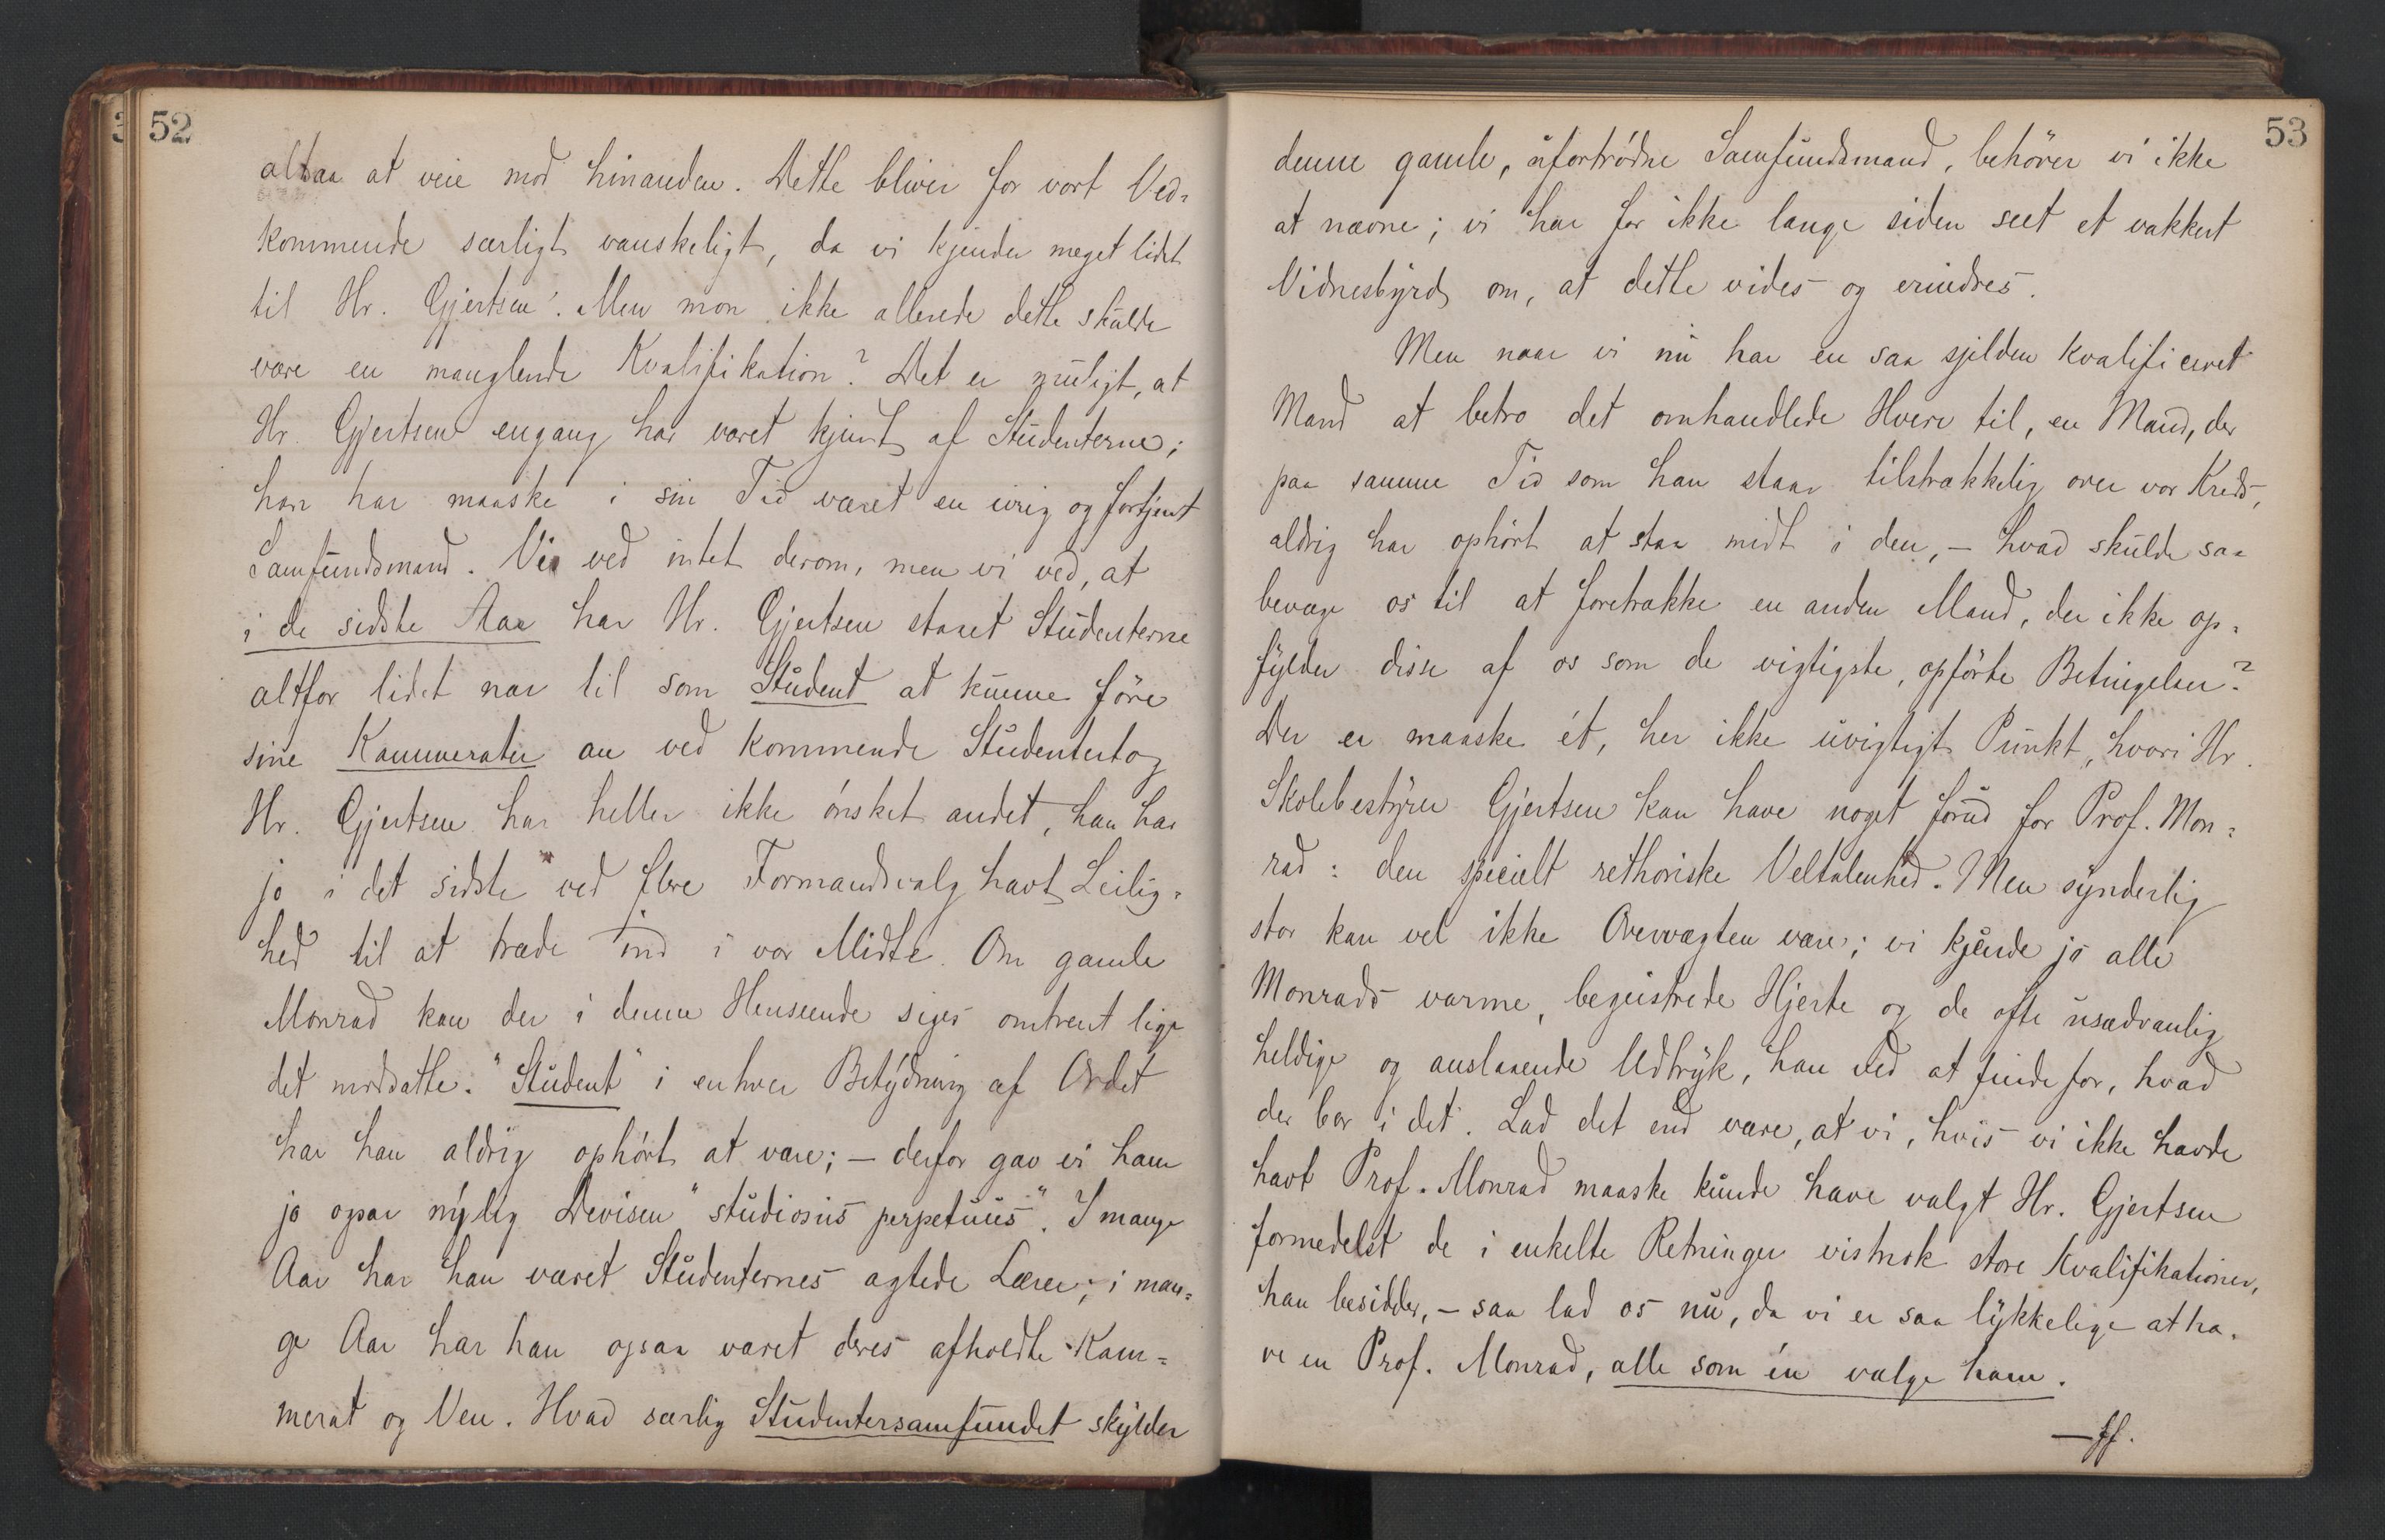 52
altsaa at veie mod hinanden. Dette bliver for vort Ved-
kommende særligt vanskeligt, da vi kjender meget lidet
til Hr. Gjertsen. Men mon ikke allerede dette skulde
være en manglende Kvalifikation? Det er muligt, at
Hr. Gjertsen engang har været kjendt af Studenterne;
han har maaske i sin Tid været en ivrig og fortjent
Samfundsmand. Vi ved intet derom, men vi ved, at
i de sidste Aar har Hr. Gjertsen staaet Studenterne
altfor lidet nær til som Student at kunne føre
sine Kammerater an ved kommende Studentertog
Hr. Gjertsen har heller ikke ønsket andet, han har
jo i det sidste ved flere Formandsvalg havt Leilig-
hed til at træde ind i vor Midte. Om gamle
Monrad kan der i denne Henseende siges omtrent lige
det modsatte. "Student" i enhver Betydning af Ordet
har han aldrig ophørt at være; – derfor gav vi ham
jo ogsaa nylig Devisen "studiosus perpetuus". I mange
Aar har han været Studenternes agtede Lærer; i man-
ge Aar har han ogsaa været deres afholdte Kam-
merat og Ven. Hvad særlig Studentersamfundet skylder
53
denne gamle, ufortrødne Samfundsmand, behøver vi ikke
at nævne; vi har for ikke lange siden seet et vakkert
Vidnesbyrd om, at dette vides og erindres.
Men naar vi nu har en saa sjelden kvalificeret
Mand at betro det omhandlede Hverv til, en Mand, der
paa samme Tid som han staar tilstrækkelig over vor Kreds,
aldrig har ophørt at staa midt i den, – hvad skulde saa
bevæge os til at foretrække en anden Mand, der ikke op-
fylder disse af os som de vigtigste, opførte Betingelser?
Der er maaske ét, her ikke uvigtigt Punkt, hvori Hr.
Skolebestyrer Gjertsen kan have noget forud for Prof. Mon-
rad: den specielt rethoriske Veltalenhed. Men synderlig
stor kan vel ikke Overvægten være; vi kjende jo alle
Monrads varme, begeistrede Hjerte og de ofte usædvanlig
heldige og anslaaende Udtryk, han ved at finde for, hvad
der bor i det. Lad det end være, at vi, hvis vi ikke havde
havt Prof. Monrad maaske kunde have valgt Hr. Gjertsen
formedelst de i enkelte Retninger vistnok store Kvalifikationer,
han besidder, – saa lad os nu, da vi er saa lykkelige at ha-
ve en Prof. Monrad, alle som én vælge ham.
—ff.